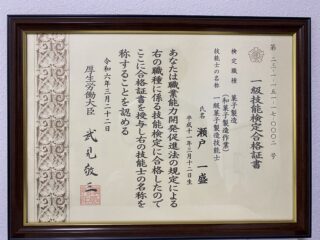 第二三-一-五一-一七-〇〇〇二号
一級技能検定合格証書
検定職種　菓子製造
（和菓子製造作業）
技能士の名称　一級菓子製造技能士
氏名　瀬戸　一盛
平成十一年三月十二日生
あなたは職業能力開発促進法の規定による
右の職種に係る技能検定に合格したので
ここに合格証書を授与し右の技能士の名称を
称することを認める
令和六年三月二十二日
厚生労働大臣　武見敬三